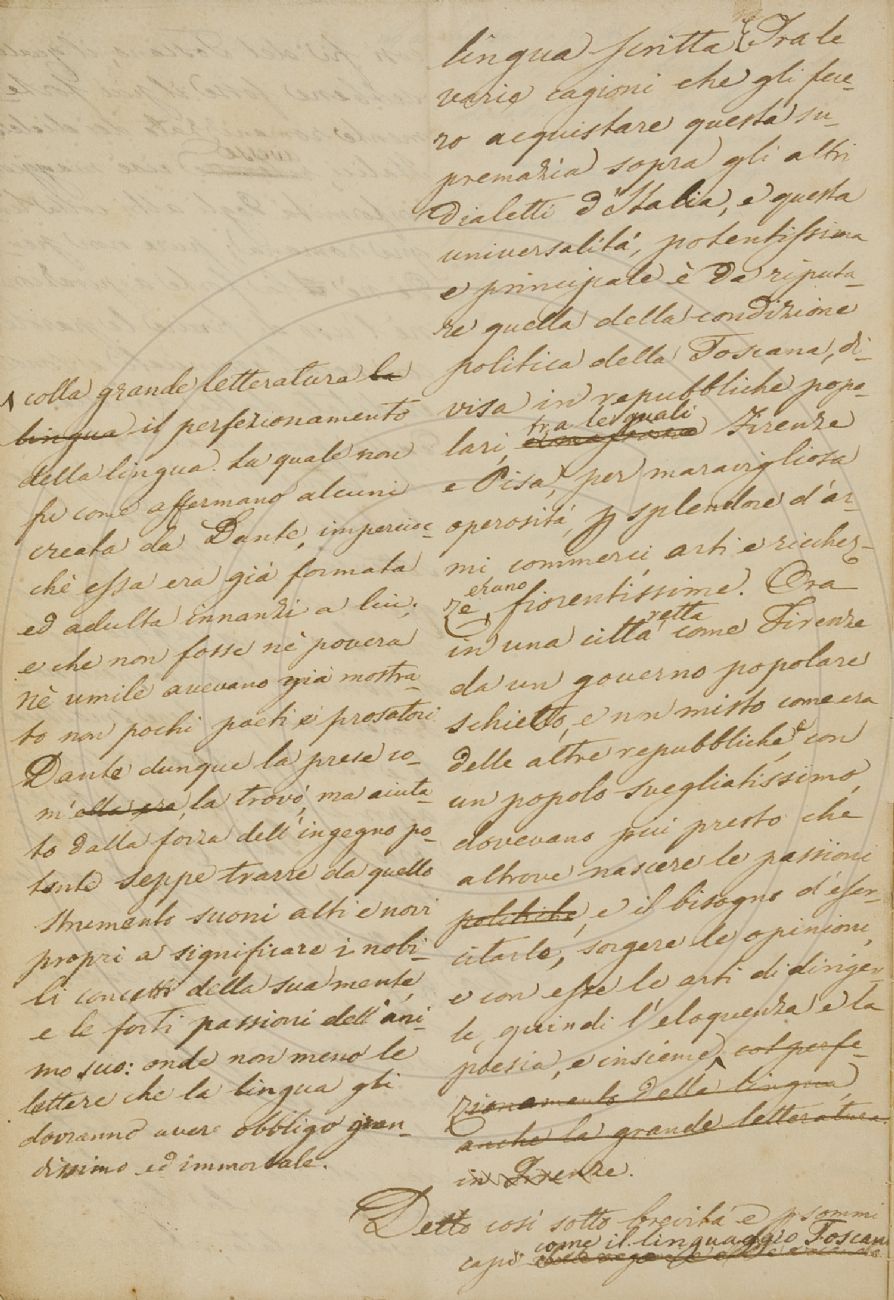 lingua scritta. Tra le
varie cagioni che gli fece-
ro acquistare questa su-
premazia sopra gli altri
dialetti d'Italia, e questa
universalità, potentissima
e principale è da riputa-
re quella della condizione
politica della Toscana, di-
visa in repubbliche popo-
fra le quali
lari, Firenze
e Pisa, per maravigliosa
operosità, p splendore d'ar-
mi, commerci, arti e ricchez-
erano
ze fiorentissime. Ora
retta
in una città come Firenze
da un governo popolare
schietto, e non misto come era
delle altre repubbliche, e con
un popolo svegliatissimo,
dovevano più presto che
altrove nascere le passioni
politiche, e il bisogno d'eser-
citarle, sorgere le opinioni,
e con esse le arti di diriger-
le, quindi l'eloquenza e la
poesia, e insieme col perfe-
zionamento della lingua
anche la grande letteratura
in Firenze.
Detto così sotto brevità e p sommi
come il linguaggio Toscano
capi
colla grande letteratura la
lingua il perfezionamento
della lingua. La quale non
fu come affermano alcuni
creata da Dante, impercioc-
chè essa era già formata
ed adulta innanzi a lui;
e che non fosse nè povera
nè umile avevano già mostra-
to non pochi poeti e prosatori.
Dante dunque la prese co-
m'ella era, la trovò, ma aiuta-
to dalla forza dell'ingegno po-
tente seppe trarre da quello
strumento suoni alti e novi
propri a significare i nobi-
li concetti della sua mente,
e le forti passioni dell'ani-
mo suo: onde non meno le
lettere che la lingua gli
dovranno avere obbligo gran-
dissimo ed immortale.